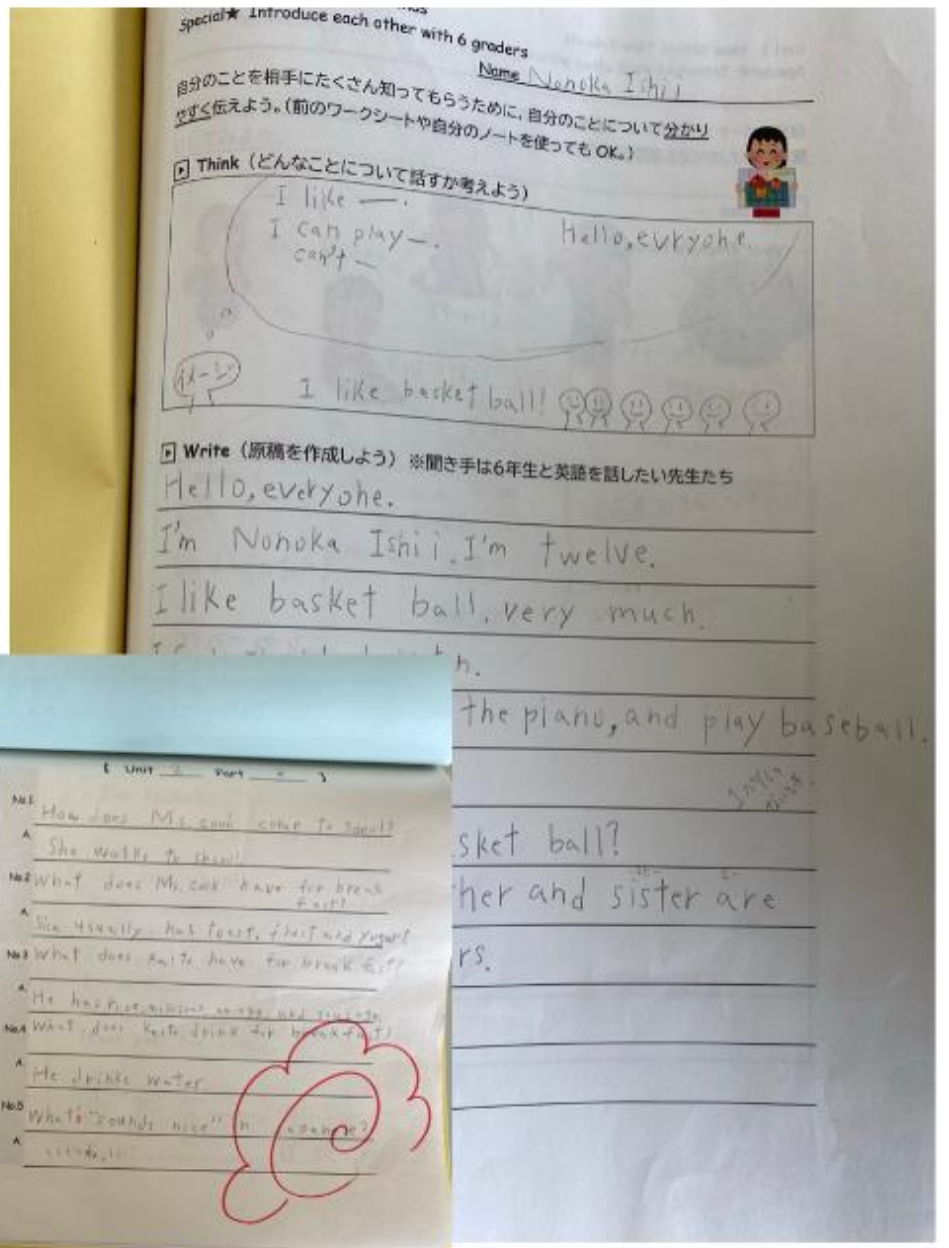 Special★ Introduce each other with 6 graders
Name Nonoka Ishii
自分のことを相手にたくさん知ってもらうために、自分のことについて分かり
やすく伝えよう。(前のワークシートや自分のノートを使ってもOK。)
Think (どんなことについて話すか考えよう)
I like —.
I can play —.
Hello, evryone.
can't —
イメージ
I like basket ball!
Write (原稿を作成しよう) ※聞き手は6年生と英語を話したい先生たち
Hello, everyone.
I'm Nonoka Ishii. I'm twelve.
I like basket ball, very much.
the piano, and play baseball.
sket ball?
her and sister are
rs.
( Unit 2 Part )
No.1 How does Ms. cook come to
A. She walks to
No.2 What does Ms. cook have for break
fast?
A. She usually has toast, fruit and
No.3 What does have for break fast?
A. He has rice, an egg, and
No.4 What does drink for break fast?
A. He drinks water
No.5 What's "sounds nice" in
A.